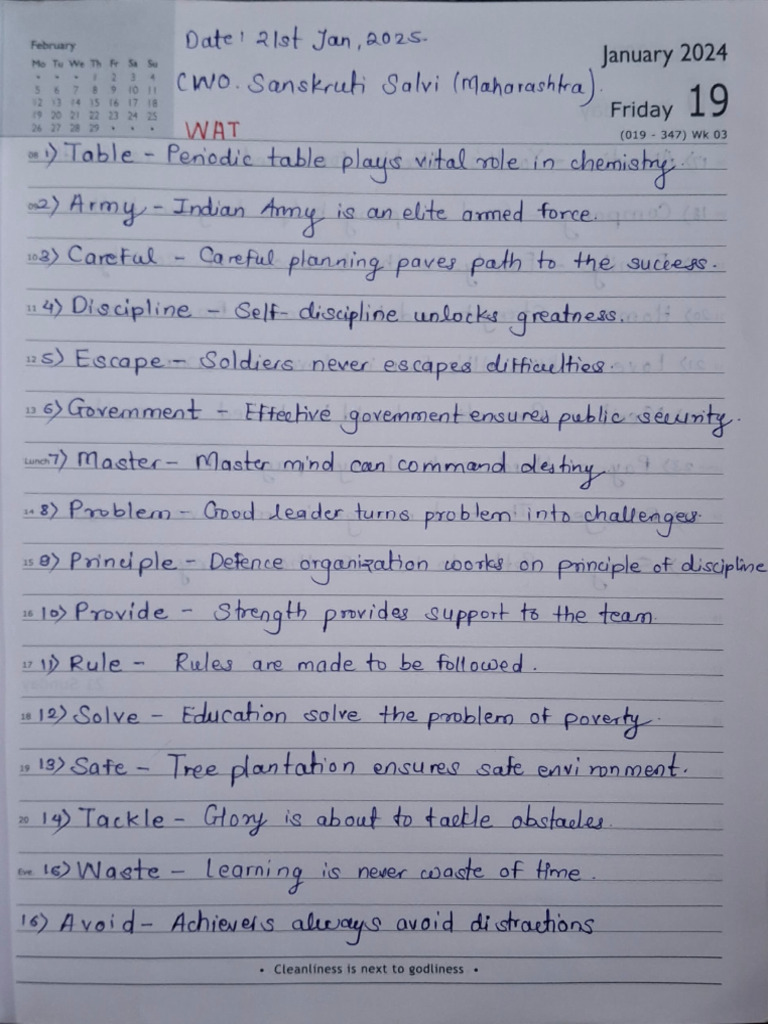 February
Mo Tu We Th Fr Sa Su
• • • 1 2 3 4
5 6 7 8 9 10 11
12 13 14 15 16 17 18
19 20 21 22 23 24 25
26 27 28 29 • • •
Date: 21st Jan, 2025.
CWO. Sanskruti Salvi (Maharashtra).
WAT
January 2024
Friday 19
(019 - 347) Wk 03
08 1) Table - Periodic table plays vital role in chemistry.
09 2) Army - Indian Army is an elite armed force.
10 3) Careful - Careful planning paves path to the success.
11 4) Discipline - Self-discipline unlocks greatness.
12 5) Escape - Soldiers never escapes difficulties.
13 6) Government - Effective government ensures public security.
Lunch 7) Master - Master mind can command destiny
14 8) Problem - Good leader turns problem into challenges.
15 9) Principle - Defence organization works on principle of discipline
16 10) Provide - Strength provides support to the team.
17 11) Rule - Rules are made to be followed.
18 12) Solve - Education solve the problem of poverty.
19 13) Safe - Tree plantation ensures safe environment.
20 14) Tackle - Glory is about to tackle obstacles.
Eve 15) Waste - Learning is never waste of time.
16) Avoid - Achievers always avoid distractions
• Cleanliness is next to godliness •